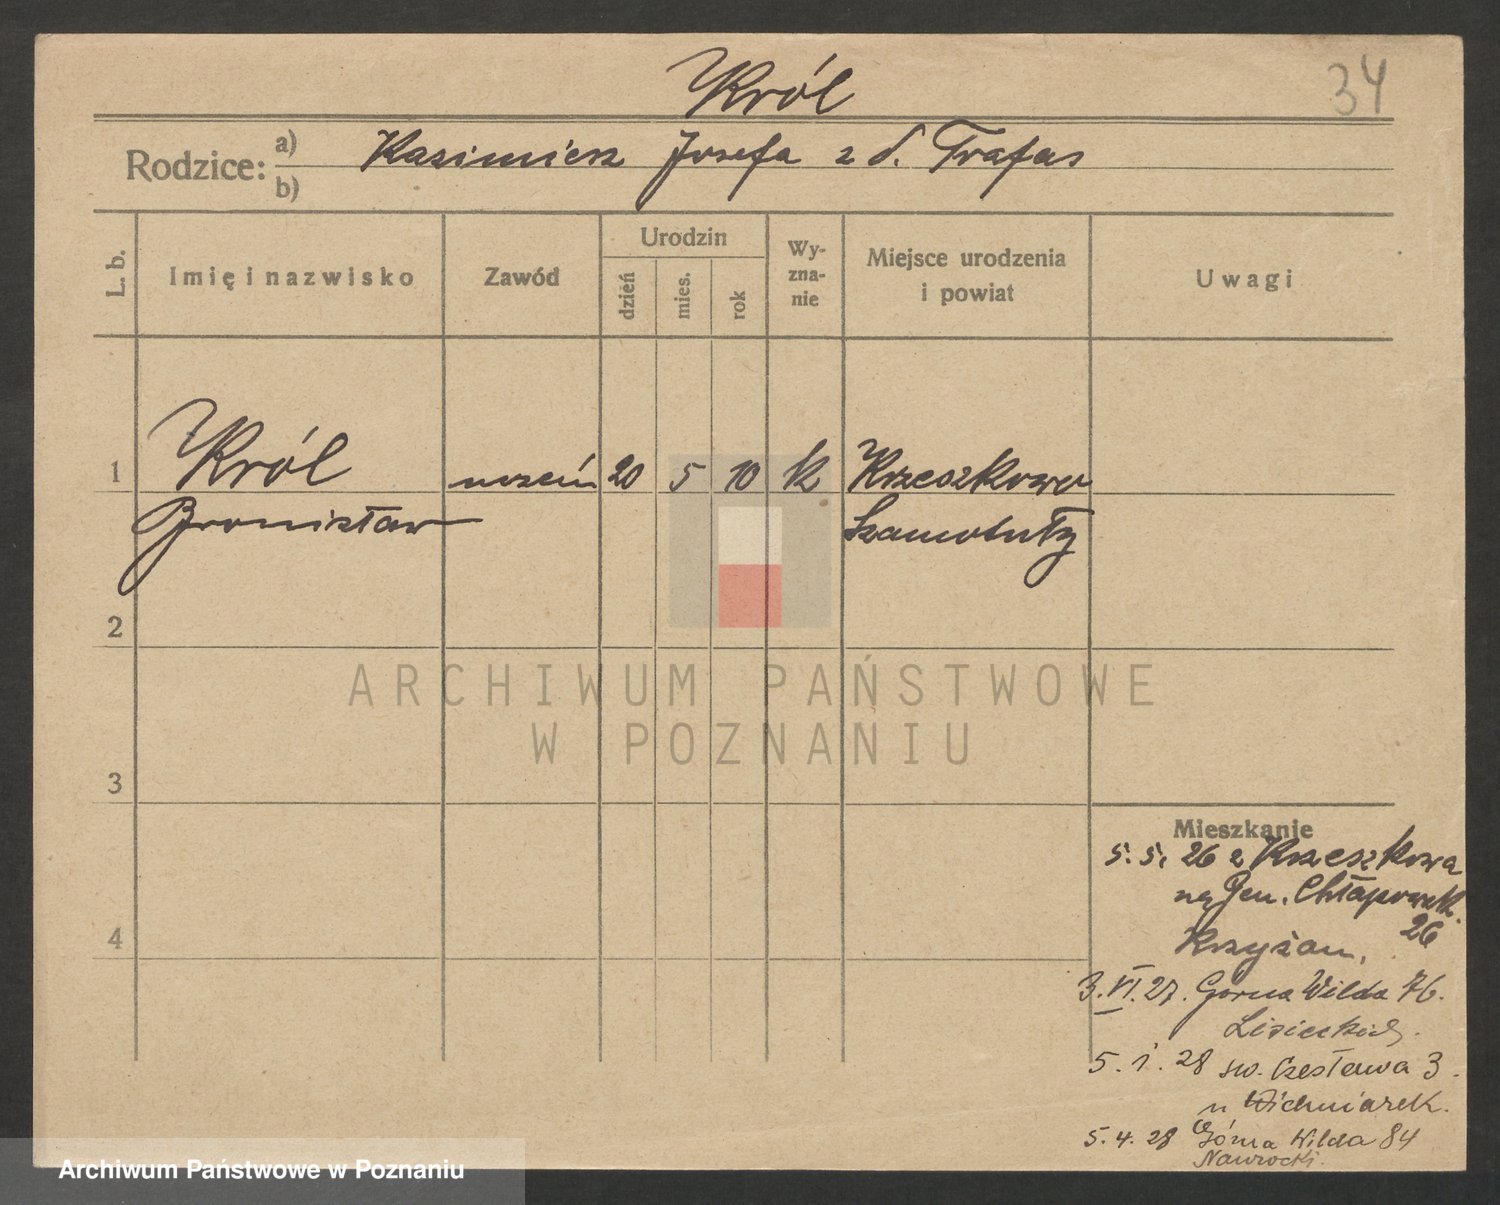 34
Król
Rodzice: a) Kazimierz Józefa z d. Trafas
b)
L. b.
Imię i nazwisko
Zawód
Urodzin
dzień
mies.
rok
Wy-
zna-
nie
Miejsce urodzenia
i powiat
Uwagi
1 Król uczeń 20 5 10 k Krzeszkowo
Bronisław Szamotuły
2
3
4
ARCHIWUM PAŃSTWOWE
W POZNANIU
Mieszkanie
5. 5. 26 z Krzeszkowa
na Gen. Chłapowsk.
26
Krzyżan.
3. VI. 27. Górna Wilda 76.
5. 1. 28 św. Czesława 3.
u Wichniarek.
5. 4. 28 Górna Wilda 84
Nawrocki.
Archiwum Państwowe w Poznaniu